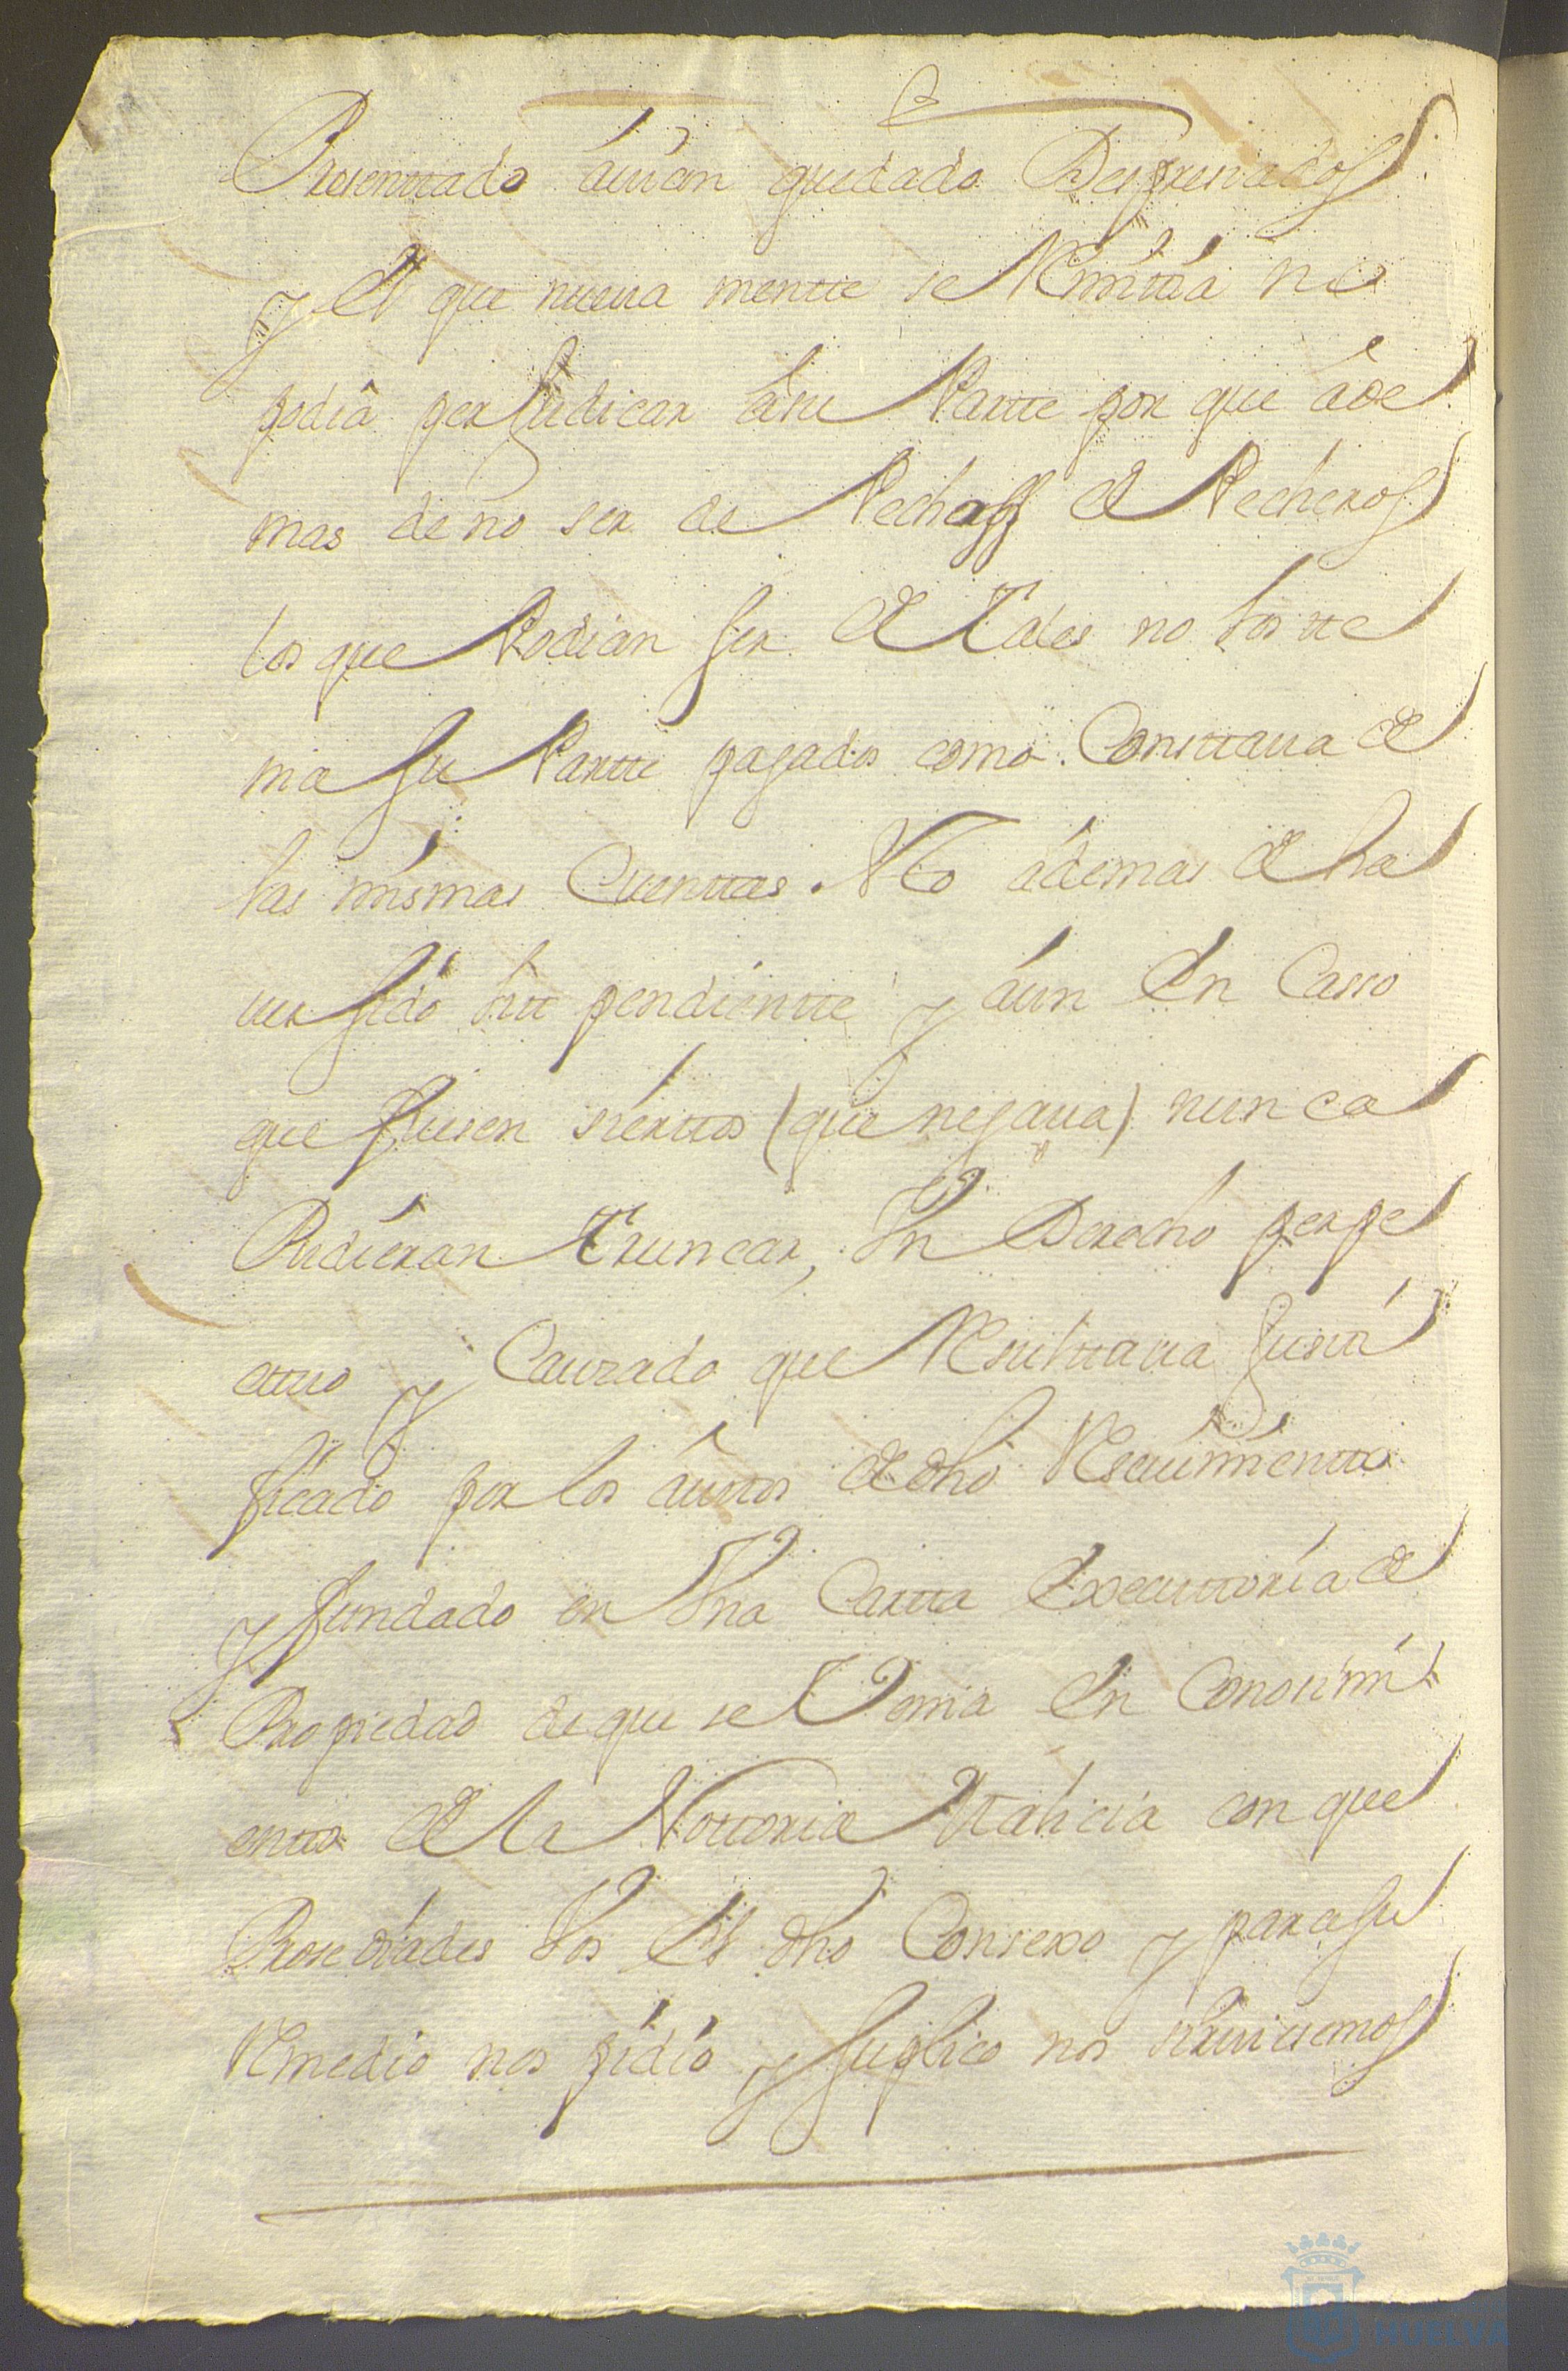 Presenttado auian quedado Despresiados
y el que nueua mentte se Rimitia no
podia perJudicar âsu Partte por que âde
mas de no ser de Pechoss de Pecheros
los que Podian ser de Tales no los tte
nia su Partte pagados como Consttaua de
las mismas Cuenttas. Nto âdemas de ha
uer sido litt pendientte y aun En Casso
que fuesen sierttos (que negaua) nunca
Pudieran Truncar, Un Derecho perpe
ttuo y Causado que Resulttaua Justi
ficado por los auttos de dho Reseuimientto
y fundado en Una Cartta Executtoria de
Propiedad de que se Venia En Conosimi
entto de la Nottoria Malicia con que
Prosediades Vos El dho Consexo y para su
Remedio nos pidio y suplico nos siruiesemos
HUELVA